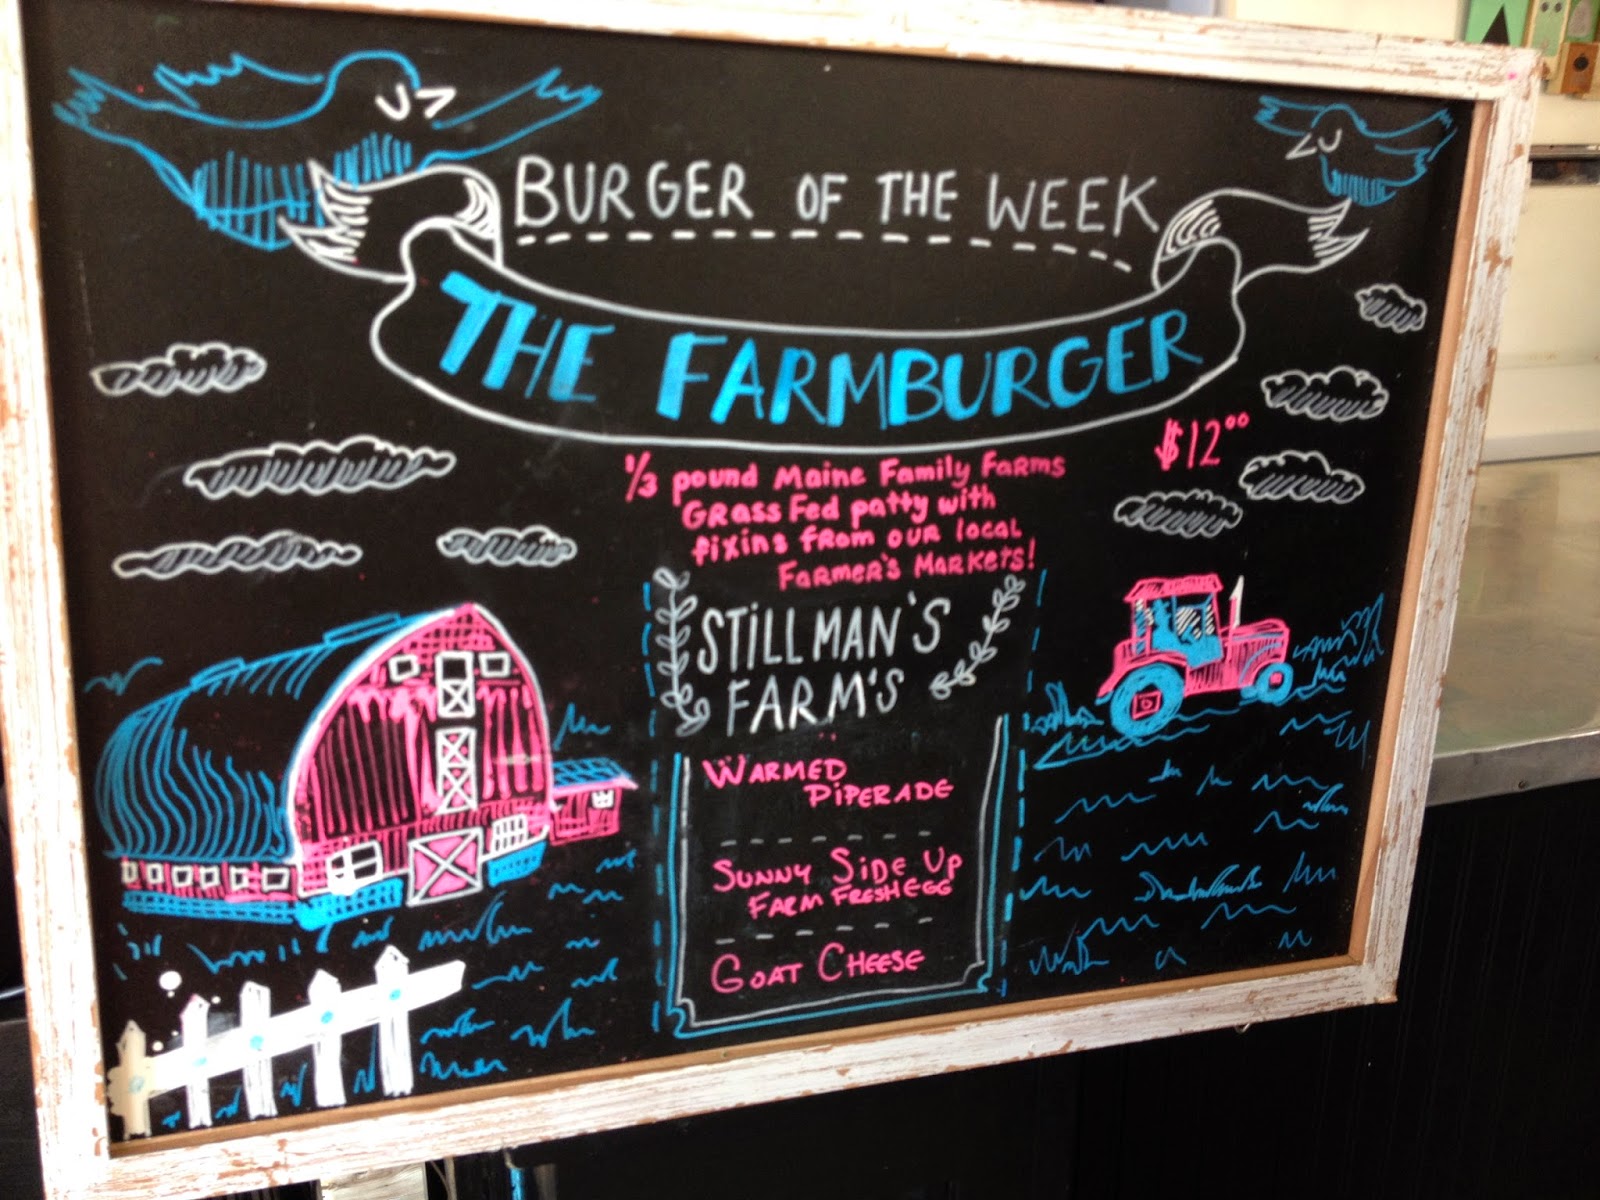 BURGER OF THE WEEK
THE FARMBURGER
$12.00
1/3 pound Maine Family Farms
Grass Fed patty with
fixins from our local
Farmer's Markets!
STILLMAN'S
FARM'S
WARMED
PIPERADE
SUNNY SIDE UP
FARM FRESH EGG
GOAT CHEESE